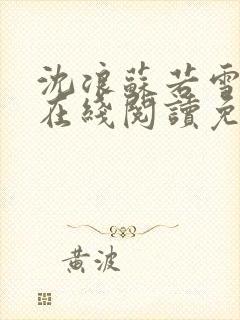 沈浪蘇若雪
在綫閱讀免
黃波